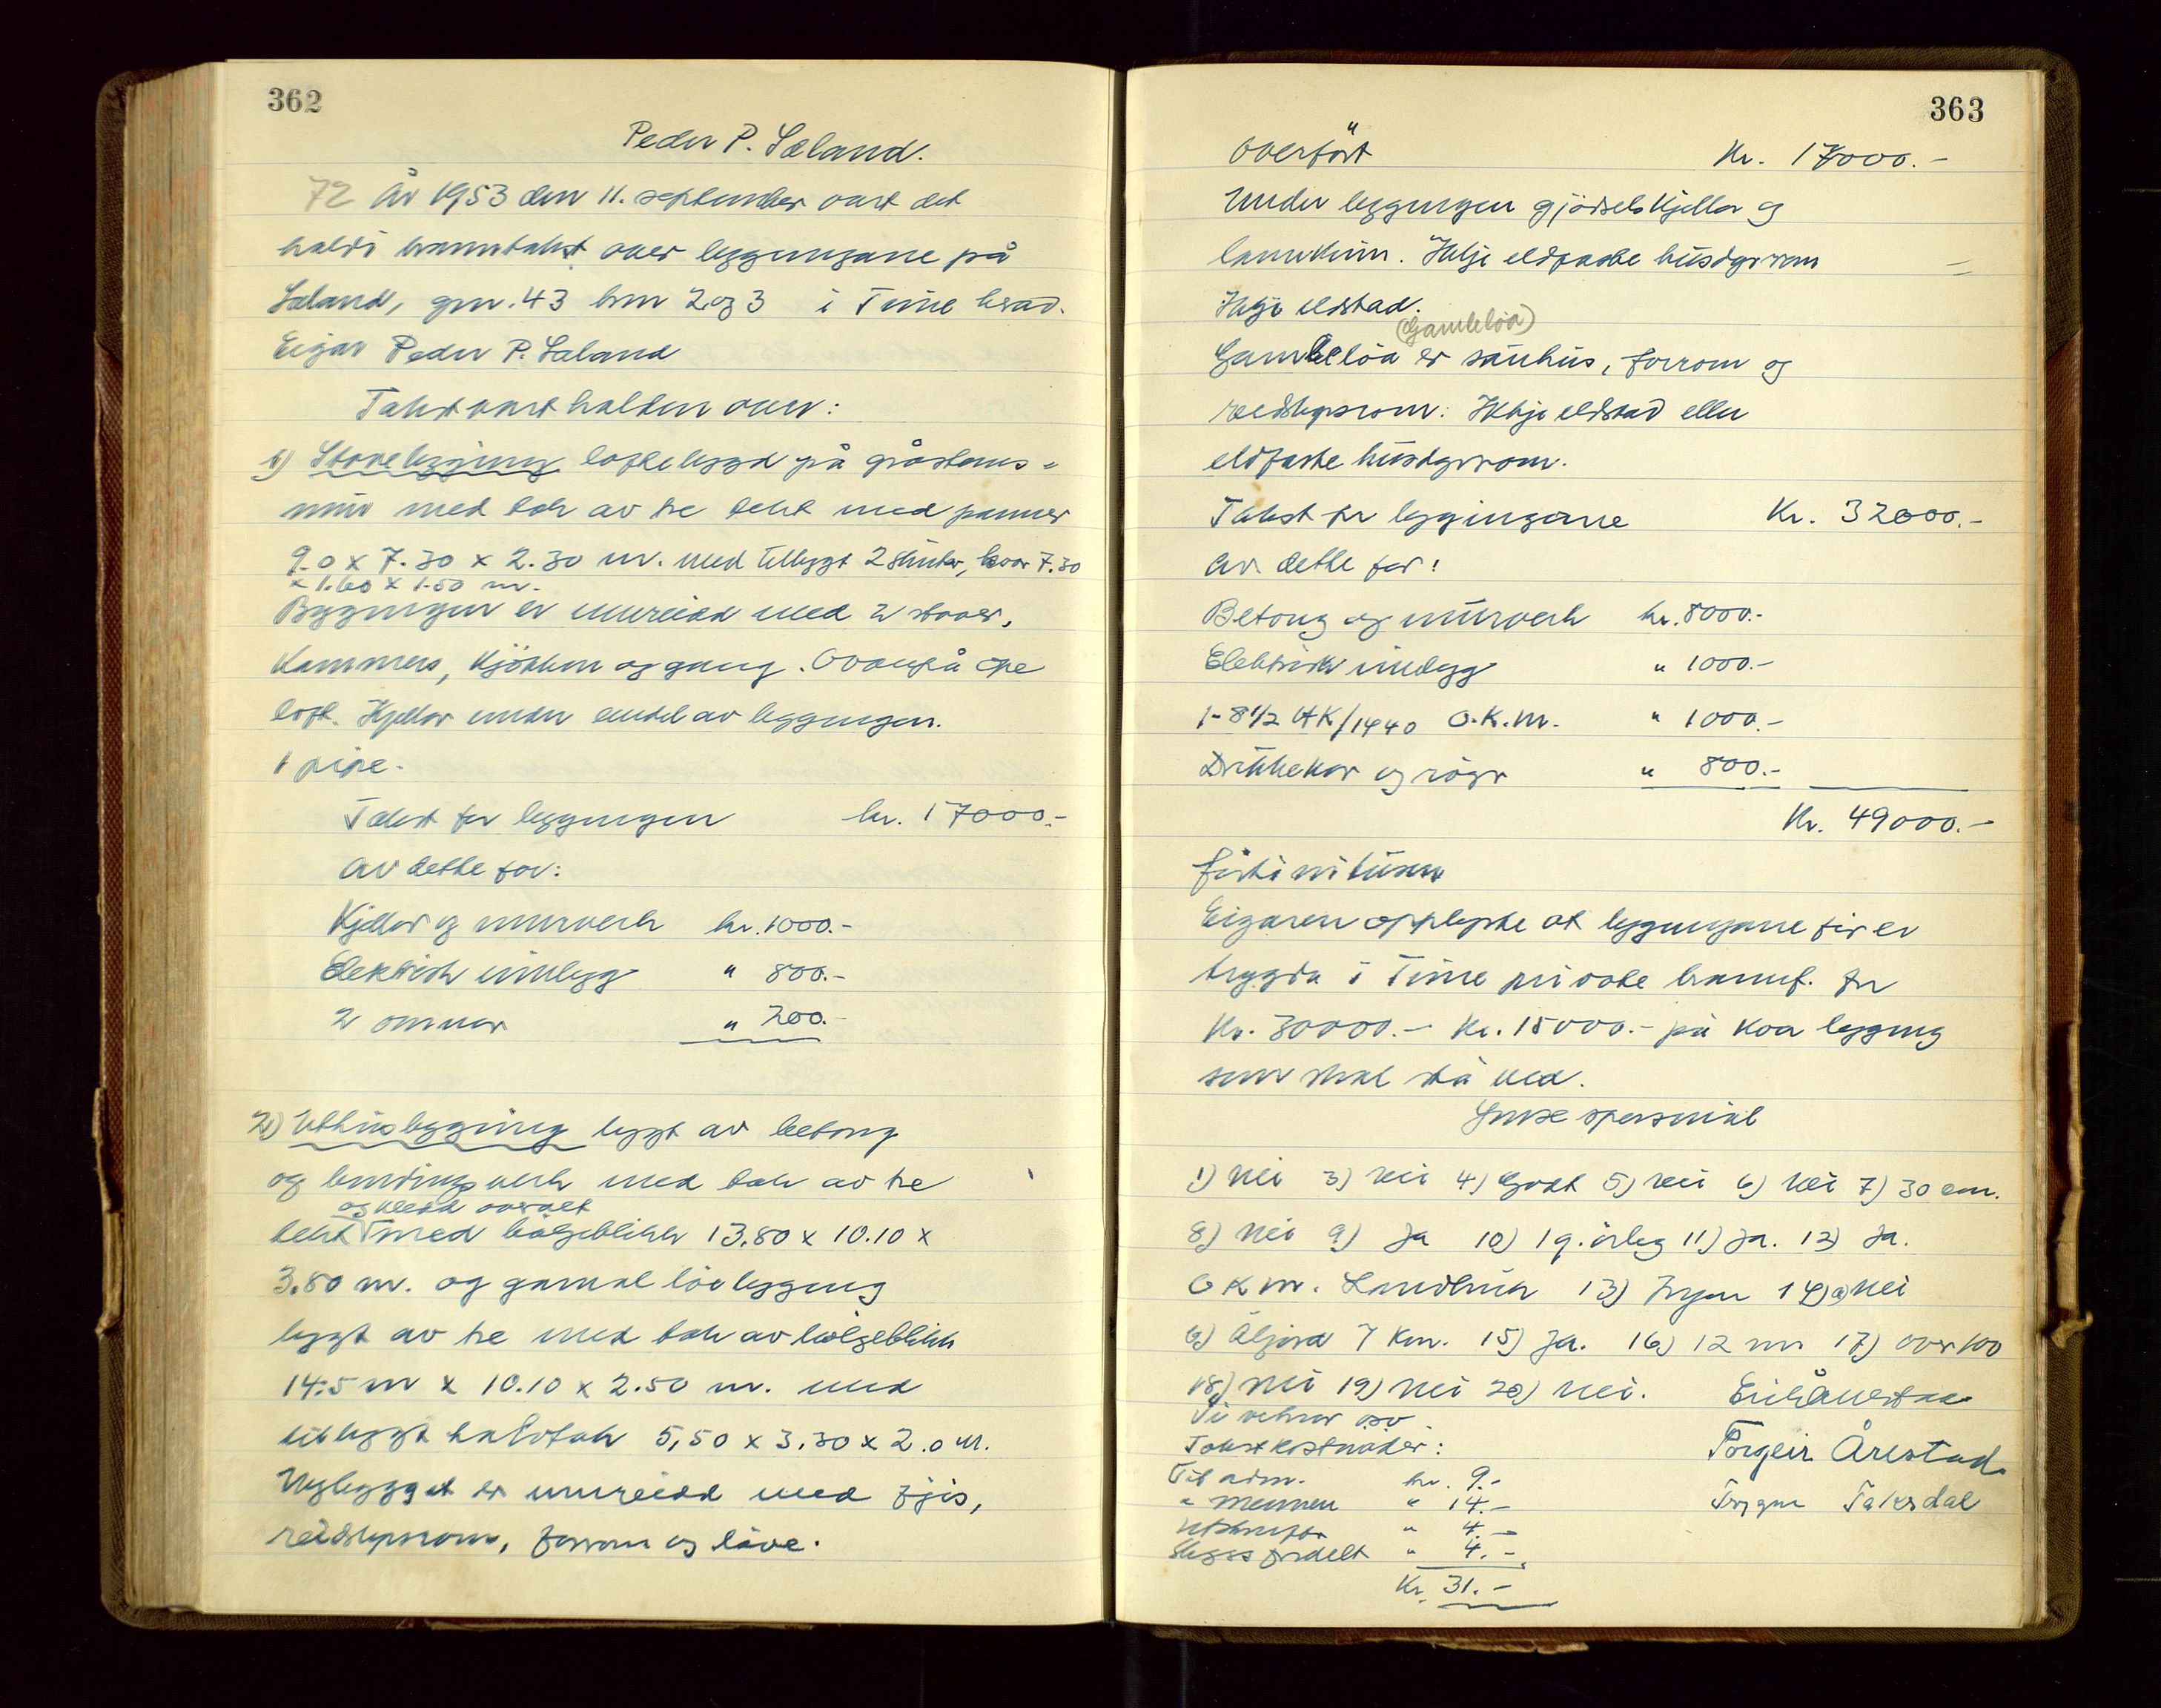 362
Peder P. Sæland.
72 År 1953 den 11. september vart det
haldi branntakst over byggingane på
Sæland, gnr. 43 brn 2 og 3 i Time herad.
Eigar Peder P. Sæland
Takst vart halden over:
1) Stovebygging loftebygd på gråsteins-
mur med tak av tre tekt med panner
9.0 x 7.30 x 2.30 m. med tilbygt 2 skutar, kvar 7.30
x 1.60 x 1.50 m.
Byggingen er innreidd med 2 stover,
Kammers, Kjökken og gang. Ovanpå ope
loft. Kjellar under ein del av byggingen.
1 pipe.
Takst for byggingen kr. 17000.-
av dette for:
Kjellar og murverk kr. 1000.-
Elektrisk innlegg " 800.-
2 omnar " 200.-
2) Uthusbygging bygt av betong
og bindingsverk med tak av tre
og kledd overalt
tekt med bølgeblikk 13.80 x 10.10 x
3.80 m. og gamal löebygging
bygt av tre med tak av bølgeblikk
14.5 m x 10.10 x 2.50 m. med
tilbygt halvtak 5,50 x 3.30 x 2.0 m.
Nybygget er innreidd med fjös,
reidskapsrom, forrom og löve.
363
Overført Kr. 17000.-
Under byggingen gjödselskjellar og
lannkum. Ikkje eldfaste husdyrrom
Ikkje eldstad.
(Gamleløa)
Gamleløa er sauhus, forrom og
reidskapsrom. Ikkje eldstad eller
eldfaste husdyrrom.
Takst for byggingane Kr. 32000.-
Av dette for:
Betong og murverk kr. 8000.-
Elektrisk innlegg " 1000.-
1- 8 1/2 HK/1440 O.K.M. " 1000.-
Drikkekar og røyr " 800.-
Kr. 49000.-
førti ni tusen
Eigaren opplyste at byggingane før er
trygda i Time private brannf. for
Kr. 30000.- Kr. 15000.- på kva bygging
som skal stå ved.
1) Nei 3) Nei 4) Godt 5) Nei 6) Nei 7) 30 cm.
8) Nei 9) Ja 10) 1 g. årleg 11) Ja. 12) Ja.
O K m. Landbruk 13) Ingen 14) a) Nei
b) Ålgård 7 Km. 15) Ja. 16) 12 m 17) over 100
18) Nei 19) Nei 20) Nei.
Takstkostnader: Torgeir Årestad
Til adm. kr. 9.-
" mennen " 14.- Trygve Taksdal
Utskrifter " 4.-
Skyss fordelt " 4.-
Kr. 31.-